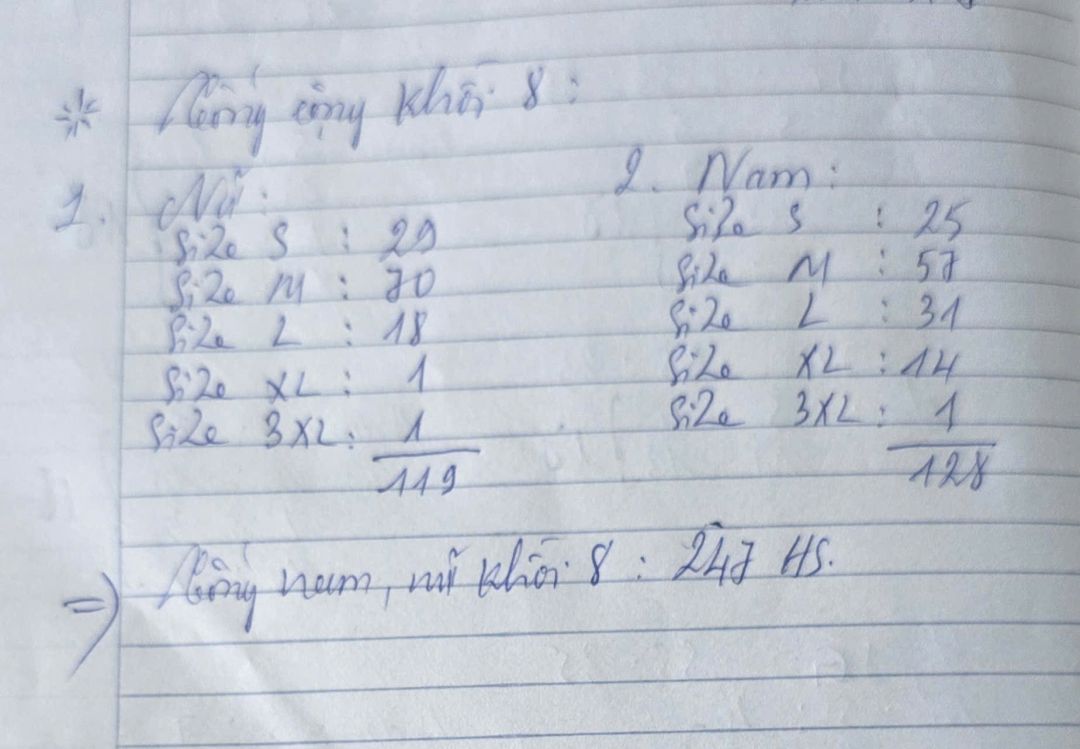 * Tổng cộng khối 8 :
1. Nữ :
Size S : 29
Size M : 70
Size L : 18
Size XL : 1
Size 3XL : 1
119
2. Nam :
Size S : 25
Size M : 57
Size L : 31
Size XL : 14
Size 3XL : 1
128
=> Tổng nam, nữ khối 8 : 247 HS.